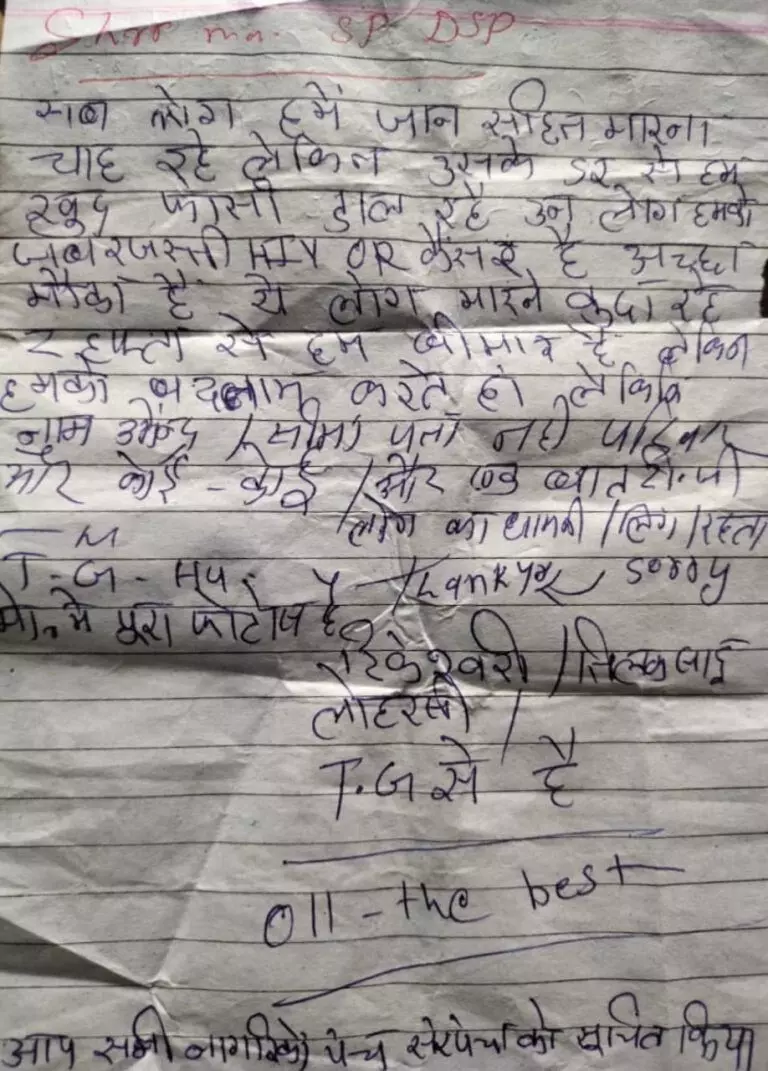 SP DSP
सब लोग हमें जान सहित मारना
चाह रहे लेकिन उसके डर से हम
खुद फासी डाल रहे उन लोग हमको
जबरजस्ती HIV OR कैंसर है अच्छा
मौका है ये लोग मारने कुदा रहे
2 हफ्ता से हम बीमार है लेकिन
हमको बदनाम करते हो लेकिन
नाम पता नही
और कोई - कोई / और एक बात
लोग का धामकी / लिंग / रहता
T. G - Hu. Y - Thank you sorry
मो. में पूरा फोटोज है
टिकेश्वरी / तिलक लाई
लोहरसी /
T.G से है
Oll - the best
आप सभी नागरिको पंच सरपंचो को सूचित किया